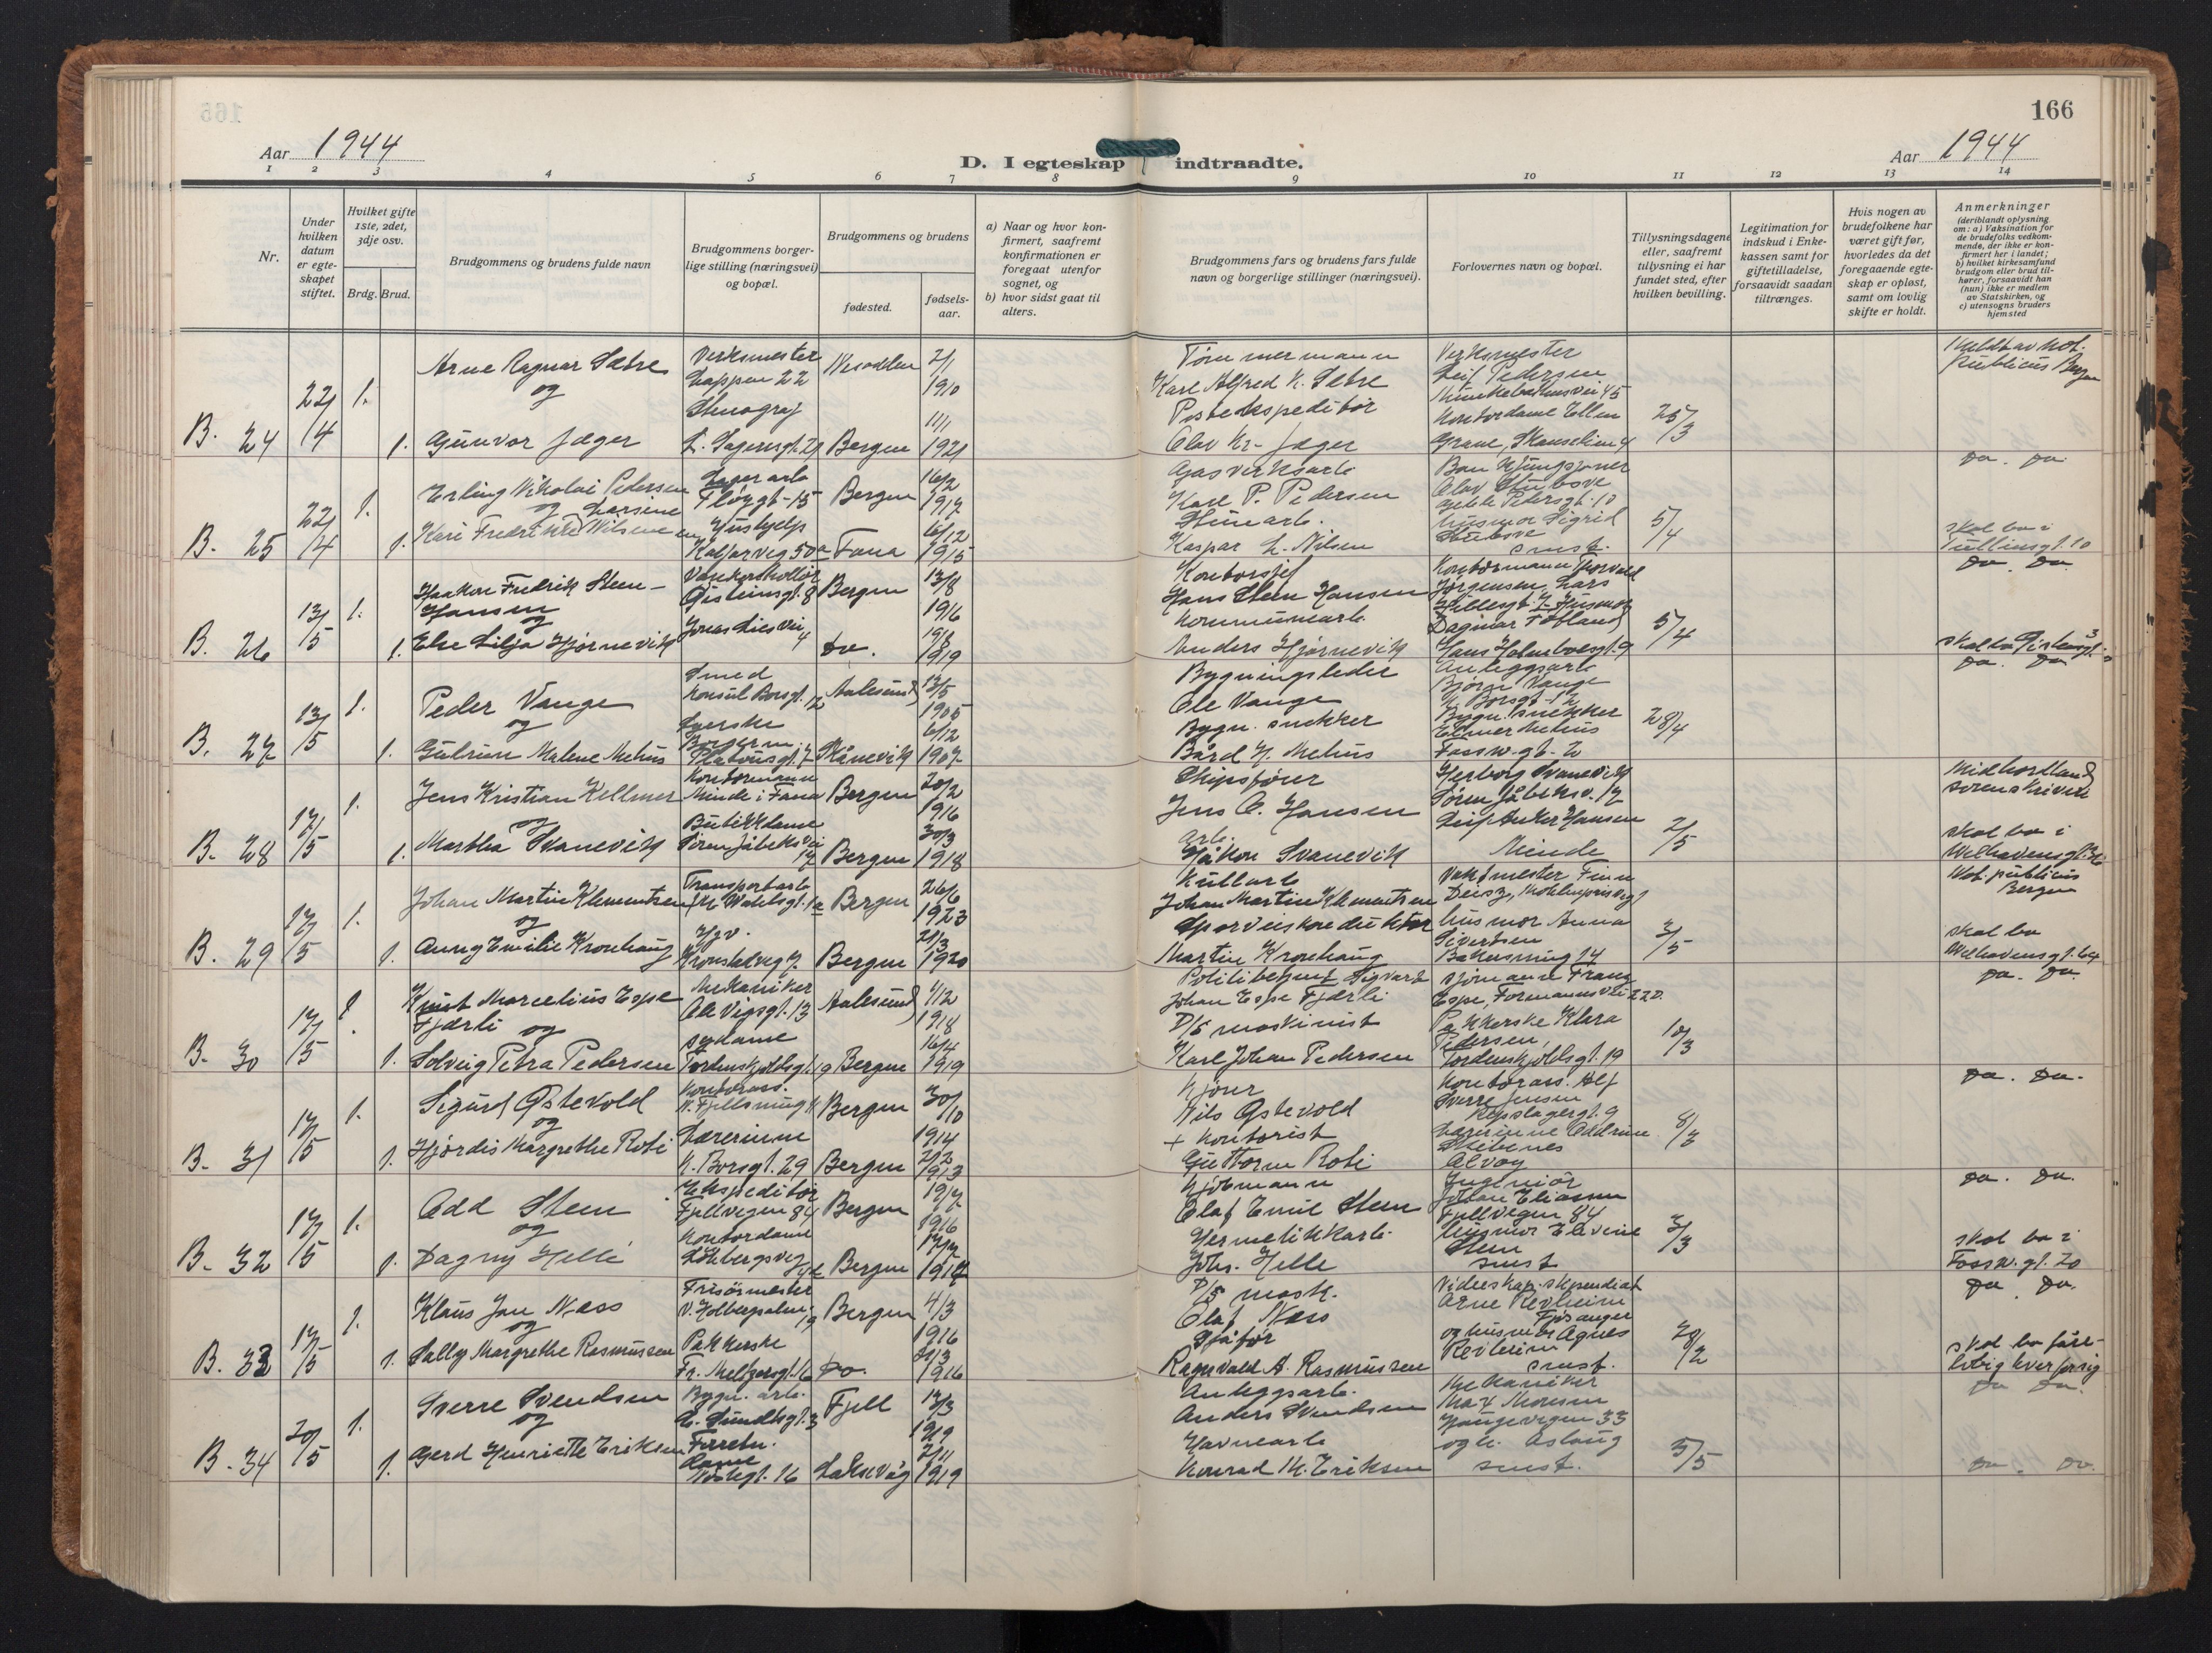 166
Aar 1944
Aar 1944
D. I egteskap indtraadte.
1 2 3 4 5 6 7 8 9 10 11 12 13 14
Nr.
Under hvilken datum er egteskapet stiftet.
Hvilket gifte 1ste, 2det, 3dje osv.
Brdg. Brud.
Brudgommens og brudens fulde navn
Brudgommens borgerlige stilling (næringsvei) og bopæl.
Brudgommens og brudens
fødested.
fødselsaar.
a) Naar og hvor konfirmert, saafremt konfirmationen er foregaat utenfor sognet, og
b) hvor sidst gaat til alters.
Brudgommens fars og brudens fars fulde navn og borgerlige stillinger (næringsvei).
Forlovernes navn og bopæl.
Tillysningsdagene eller, saafremt tillysning ei har fundet sted, efter hvilken bevilling.
Legitimation for indskud i Enkekassen samt for giftetilladelse, forsaavidt saadan tiltrænges.
Hvis nogen av brudefolkene har været gift før, hvorledes da det foregaaende egteskap er opløst, samt om lovlig skifte er holdt.
Anmerkninger
(deriblandt oplysning om: a) Vaksination for de brudefolks vedkommende, der ikke er konfirmert her i landet; b) hvilket kirkesamfund brudgom eller brud tilhører, forsaavidt han (hun) ikke er medlem av Statskirken, og c) utensogns bruders hjemsted
B. 24 22/4 1.
Arne Ragnar Sætre
og
1. Gunvor Jæger
Verksmester
Lappen 22
Stenograf
L. Sagensgt. 21
Nesodden 2/1 1910
Bergen 11/1 1921
Tømmermann
Karl Alfred K. Sætre
Postekspeditør
Olav Kr. Jæger
Verksmester
Leif Pedersen
Munkebotnsvei 45
Kontordame Ellen
Grane, Skanselien 4
25/3
Meldt av Not.
publicus Bergen
B. 25 22/4 1.
Erling Nikolai Pedersen
og Larsine
1. Kari Fredrikke Nilsen
Lagerarb
Fløygt. 15
Hushjelp
Kalfarveg 50a
Bergen 16/2 1917
Fana 6/12 1915
Gasverksarb
Karl P. Pedersen
Stenarb.
Kaspar L. Nilsen
Olav Stubsve
husmor Sigrid
Stubsve
smst.
5/4
Do. Do.
skal bo i
Tullinsgt. 10
B. 26 13/5 1.
Haakon Fredrik Steen-
Hansen
og
1. Else Lilja Hjørnevik
Gisteinsgt. 8
Jonas Lies vei 4
Bergen 13/8 1916
Do. 19/8 1919
Kontorsjef
Hans Steen Hansen
Kommunearb
Anders Hjørnevik
Kontormann Thorvald
Jørgensen, Lars
Hillesgt. 7 Husmor
Dagmar Totland
Hans Holmboesgt. 9
5/4
Do. Do.
B. 27 13/5 1.
Peder Vange
og
1. Gudrun Malene Mehus
Smed
Konsul Børsgt. 12
Syerske
Platousgt. 7
Aalesund 13/5 1905
Skånevik 6/12 1907
Bygningsleder
Ole Vange
Bygn. snekker
Bård H. Mehus
Anleggsarb
Bjørn Vange
K. Børsgt. 12
Bygn. snekker
Elmer Mehus
Fossw. gt. 2
28/4
Do. Do.
B. 28 17/5 1.
Jens Kristian Kellmer
og
1. Martha Svanevik
Kontormann
Minde i Fana
Butikkdame
Søren Jåbeksvei 17
Bergen 20/2 1916
Bergen 30/3 1918
Skipsfører
Jens C. Hansen
arb.
Håkon Svanevik
Herborg Svanevik
Søren Jåbeksv. 17
Leif Anker Hansen
Minde
2/5
Midhordland
sorenskriveri
skal bo i
B. 29 17/5 1.
Johan Martin Klementsen
og
1. Anny Emilie Kronhaug
Transportarb
M. Wahlsgt. 1a
Hgv.
Kronstadveg 7
Bergen 26/6 1923
Bergen 21/3 1920
Kullarb
Johan Martin Klementsen
Sporveiskonduktør
Martin Kronhaug
Vaktmester Finn
husmor Anna
Sivertsen
Bakersmug 14
3/5
Not. publicus
Bergen
skal bo
Welhavensgt. 64
B. 30 17/5 1.
Knut Marcelius Espe
Fjærli
og
1. Solveig Petra Pedersen
Mekaniker
Ole Vigsgt. 13
sydame
Tordenskjoldsgt. 19
Aalesund 4/12 1918
Bergen 16/4 1919
Politibetjent Sigvart
Johan Espe Fjærli
D/S maskinist
Karl Johan Pedersen
sjømann Franz
Espe, Formannsvei 22 D.
Pakkerske Klara
Pedersen,
Tordenskjoldsgt. 19
10/3
Do. Do.
B. 31 17/5 1.
Sigurd Østevold
og
1. Hjørdis Margrethe Roti
Kontorass.
N. Fjellsmug 11
Lærerinne
K. Børsgt. 29
Bergen 30/10 1914
Bergen 2/2 1913
Kjører
Nils Østevold
+ Kontorist
Guttorm Roti
Kontorass. Alf
Sverre Jensen
Repslagergt. 9
Lærerinne Oddrun
Stebenes
Alvøy
8/3
Do. Do.
B. 32 17/5 1.
Odd Steen
og
1. Dagny Helle
Ekspeditør
Fjellvegen 84
Kontordame
Løbergsveg
Bergen 19/7 1916
Bergen 17/7 1917
Kjøbmann
Olaf Emil Steen
Hermetikkarb.
Johs. Helle
Ingeniør
Johan Eliassen
Fjellvegen 84
husmor Elevine
Steen
smst
3/3
Do. Do.
skal bo i
Fossw. gt. 20
B. 33 17/5 1.
Klaus Jan Næss
og
1. Sally Margrethe Rasmussen
Frisørmester
V. Holbergsalm. 19
Pakkerske
Fr. Meltzersgt. 16
Bergen 4/3 1916
Do. 21/3 1916
D/S mask.
Olaf Næss
Sjåfør
Ragnvald A. Rasmussen
Videnskap. stipendiat
Arne Revheim
Fjøsanger
og husmor Agnes
Revheim
smst.
28/2
Do. Do.
skal bo føre-
løbig hver for sig
B. 34 20/5 1.
Sverre Svendsen
og
1. Gerd Henriette Eriksen
Bygn. arb.
E. Sundtsgt. 3
Forretn.
dame
Nostegt. 16
Fjell 13/3 1919
Laksevåg 2/11 1919
Anleggsarb.
Anders Svendsen
Havnearb
Konrad M. Eriksen
Mekaniker
Max Monsen
Haugevegen 33
og h. Aslaug
smst.
5/5
Do Do.
Do. Do.